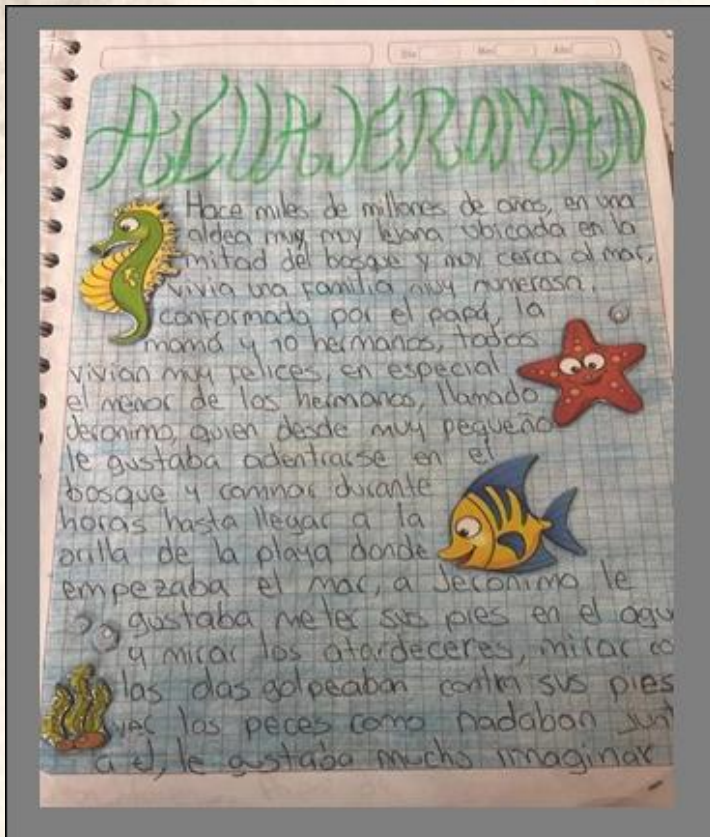 ACUAJEROMAN
Hace miles de millones de años, en una
aldea muy, muy lejana ubicada en la
mitad del bosque y muy cerca al mar,
vivia una familia muy numerosa,
conformada por el papá, la
mamá y 10 hermanos, todos
vivian muy felices, en especial
el menor de los hermanos, llamado
Jeronimo, quien desde muy pequeño
le gustaba adentrarse en el
bosque y caminar durante
horas hasta llegar a la
orilla de la playa donde
empezaba el mar, a Jeronimo le
gustaba meter sus pies en el agu
y mirar los atardeceres, mirar co
las olas golpeaban contra sus pies
ver los peces como nadaban junt
a el, le gustaba mucho imaginar